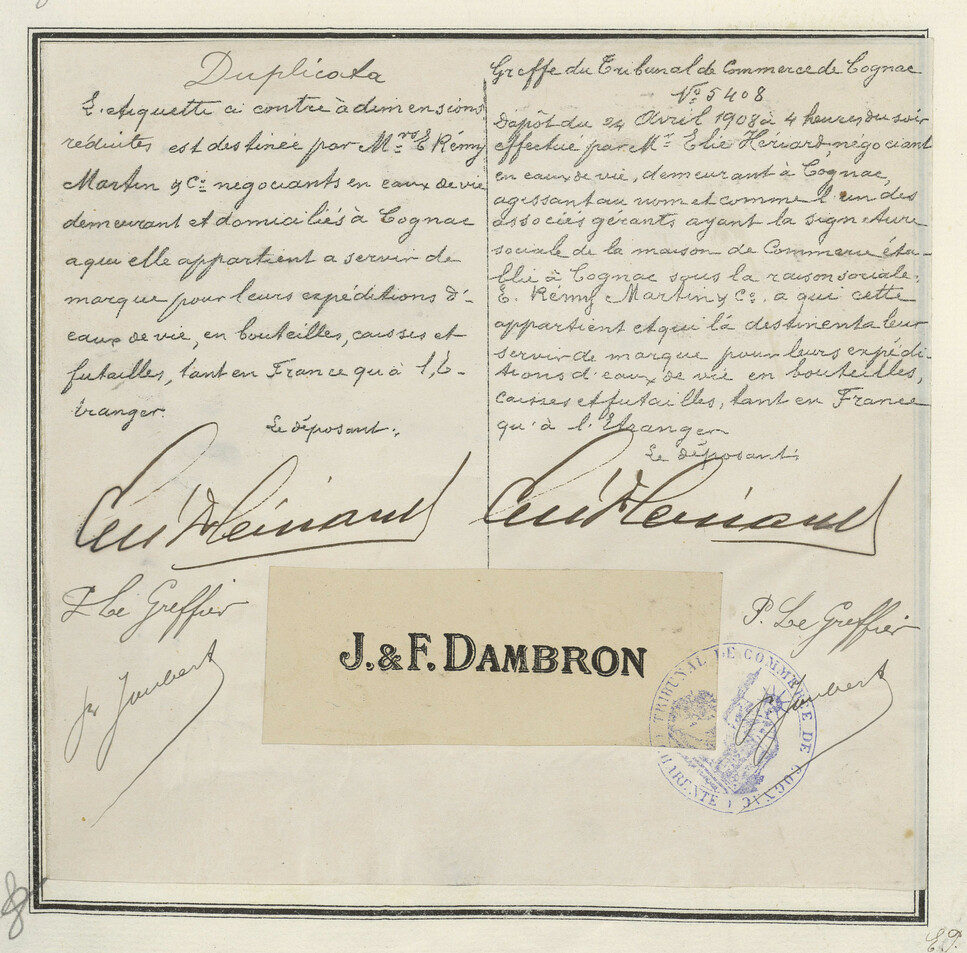 Duplicata
L'étiquette ci contre à dimensions
réduites est destinée par Mrs E Rémy
Martin & Cie négociants en eaux de vie
demeurant et domiciliés à Cognac
a qui elle appartient a servir de
marque pour leurs expéditions d'-
eaux de vie, en bouteilles, caisses et
futailles, tant en France qu'à l'E-
tranger.
Le déposant:
P. Le Greffier
Joubert
Greffe du Tribunal de Commerce de Cognac
No 5408
Dépôt du 24 Avril 1908 à 4 heures du soir
effectué par Mr Elie Hériard, négociant
en eaux de vie, demeurant à Cognac,
agissant au nom et comme l'un des
associés gérants ayant la signature
sociale de la maison de Commerce éta-
blie à Cognac sous la raison sociale:
E. Rémy Martin & Co. a qui cette
appartient et qui la destinent a leur
servir de marque pour leurs expédi-
tions d'eaux de vie en bouteilles,
caisses et futailles, tant en France
qu'à l'Etranger
Le déposant:
P. Le Greffier
Joubert
J. & F. DAMBRON
TRIBUNAL DE COMMERCE DE COGNAC
CHARENTE